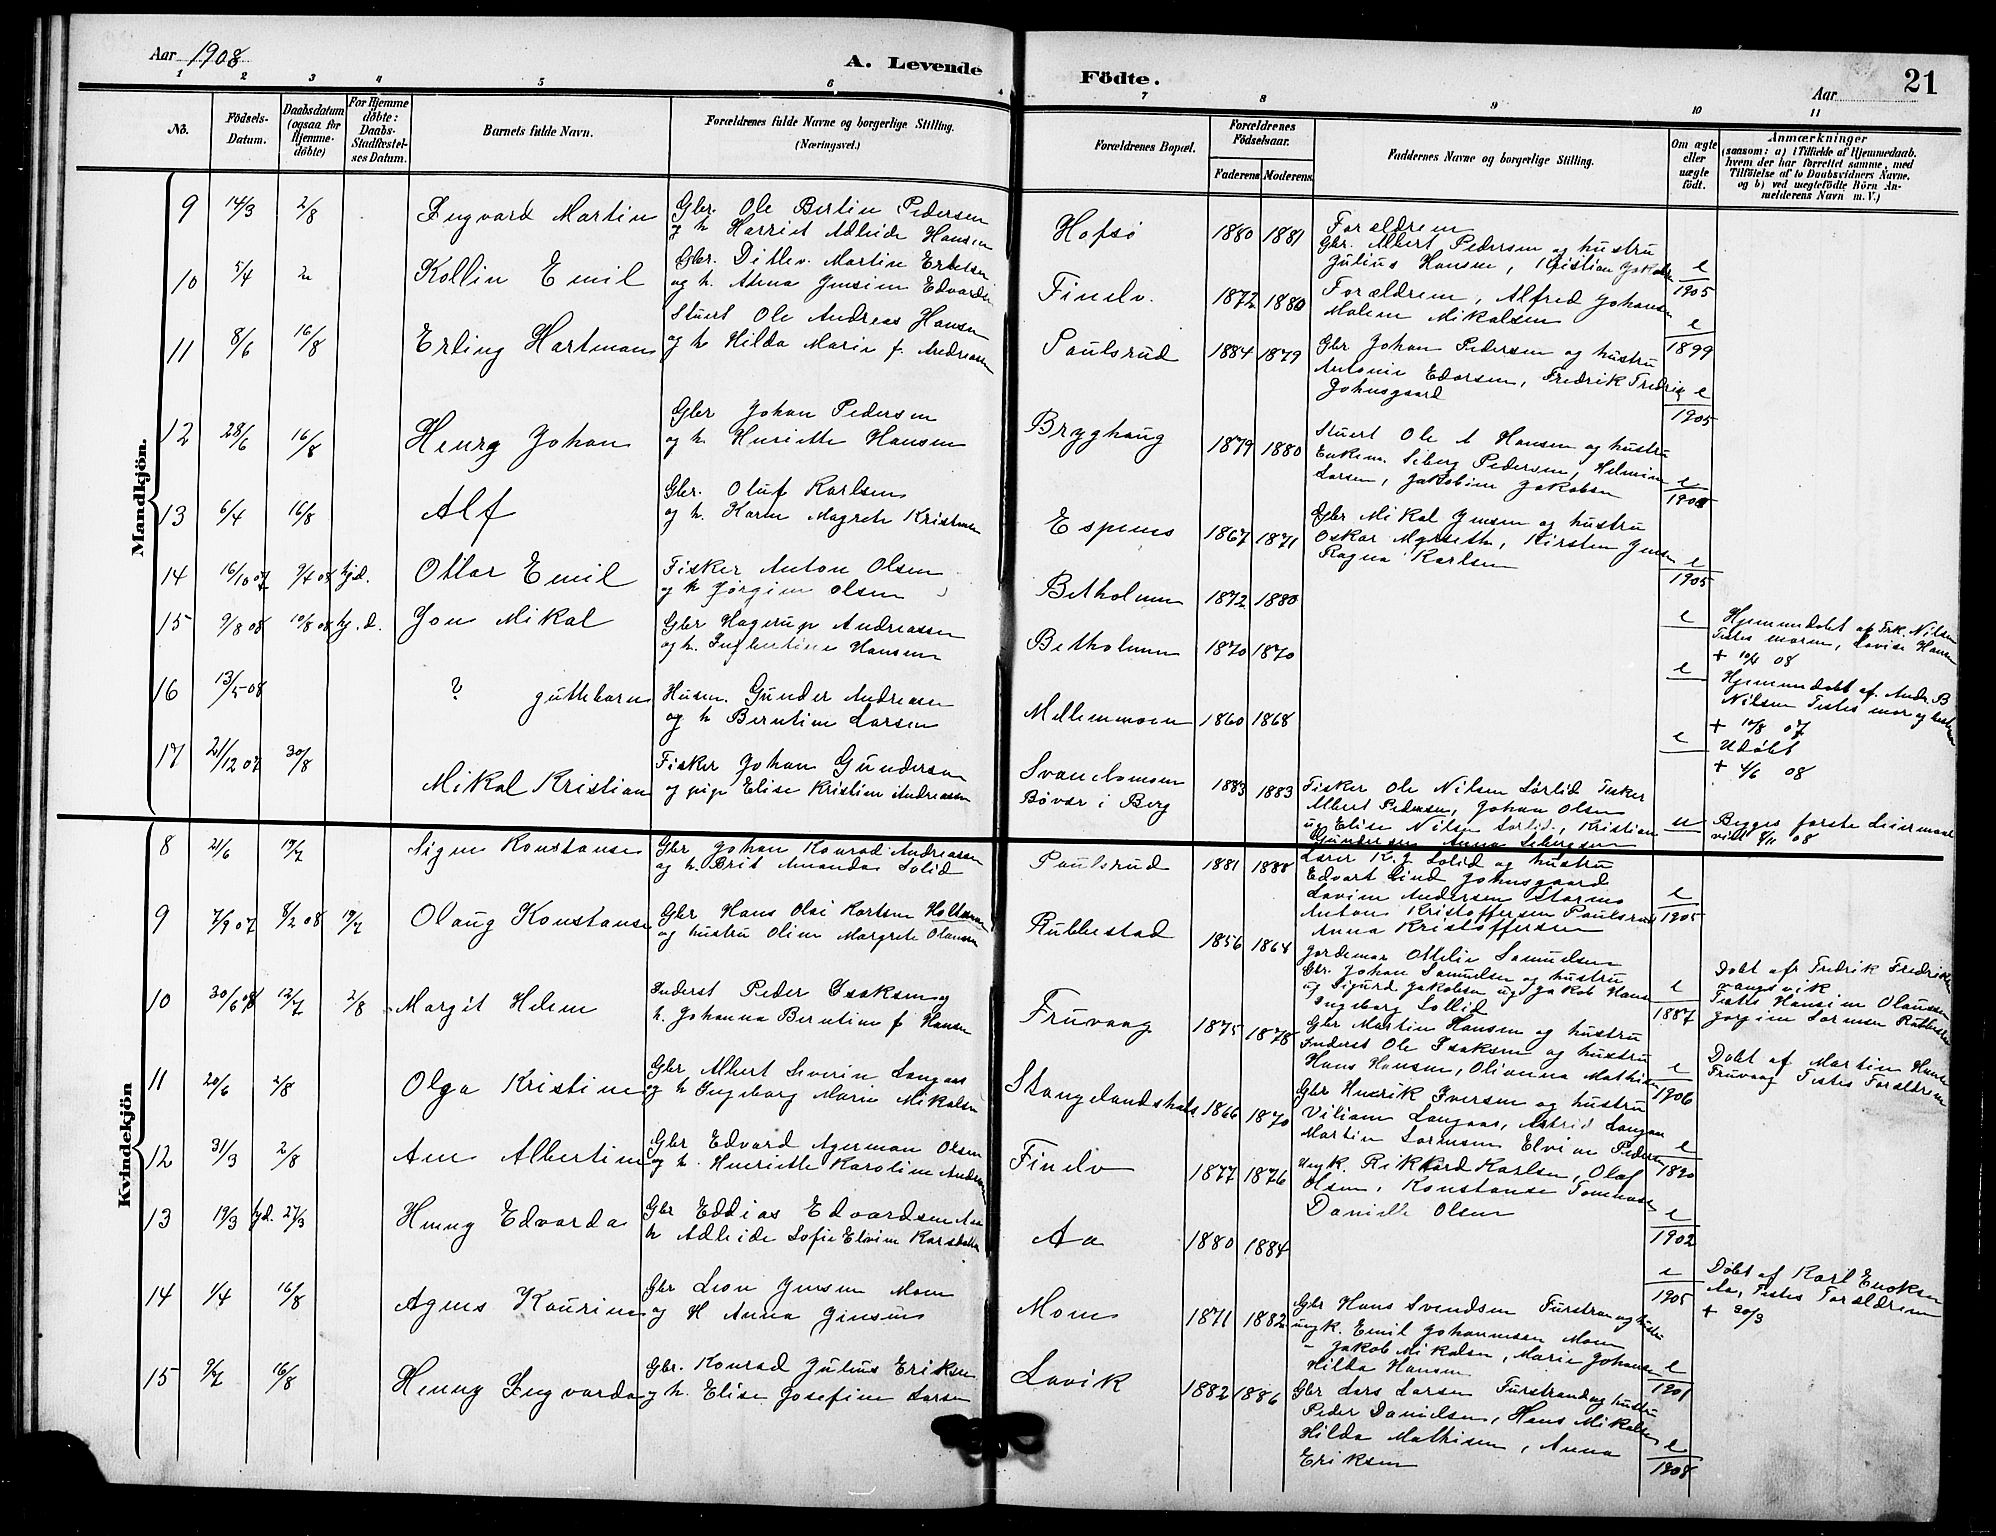 Aar 1908
A. Levende
Födte.
Aar
21
1 2 3 4 5 6
7 8 9 10 11
No.
Födsels-Datum.
Daabsdatum (ogsaa for Hjemme-döbte)
For Hjemme döbte: Daabs-Stadfæstel-ses Datum.
Barnets fulde Navn.
Forældrenes fulde Navne og borgerlige Stilling.
(Næringsvei.)
Forældrenes Bopæl.
Forældrenes Födselsaar.
Faderens Moderens
Faddernes Navne og borgerlige Stilling.
Om ægte eller uægte födt.
Anmærkninger
(saasom: a) i Tilfælde af Hjemmedaab.
hvem der har forrettet samme, med
Tilföielse af to Daabsvidners Navne.
og b) ved uegtefödte Börn An-
melderens Navn m. V.)
Mandkjön.
9 14/3 2/8 Ingvard Martin
Gbr. Ole Bertin Pedersen
og h Harriet Adleide Hansen
Hofsö 1880 1881
Forældrene
Gbr. Albert Pedersen og hustru
Julius Hansen, Kristian Jakobsen
e
1905
10 5/4 Kollin Emil
Gbr. Ditlev Martin
og h. Anna Jensine
Finelv. 1872 1880
Forældrene, Alfred Johans
Malene Mikalsen
e
1899
11 8/6 16/8 Erling Hartman
Stuert Ole Andreas Hansen
og h Hilda Marie f. Andreassen
Paulsrud 1884 1879
Gbr Johan Pedersen og hustru
Antonie Fredrik
Johnsgaard
e
1905
12 28/6 16/8 Henry Johan
Gbr Johan Pedersen
og h Henriette Hansen
Bryghaug 1879 1880
Stuert Ole A Hansen og hustru
Enkem. Siberg Pedersen,
Larsen, Jakobine Jakobsen
e
13 6/4 16/8 Alf
Gbr. Oluf Karlsen
og h. Karen Magrete
Espenes 1867 1871
Gbr Mikal Jensen og hustru
Oskar Kirsten Jensen
Ragna Karlsen
e
1905
14 16/10 07 9/4 08 hjd. Ottar Emil
Fisker Anton Olsen
og h Jørgine Olsen
Betholmen 1872 1880
e
Hjemmedøbt af Frk. Nilsen
Testes moren, Lovise Hansen
+ 10/4 08
15 9/8 08 10/8 08 hj. d. Jon Mikal
Gbr Hagerup Andreassen
og h. Ingbertine Hansen
Betholmen 1870 1870
e
Hjemmedøbt af. Andr. B
Nilsen Testes mor og
+ 10/8 07
16 13/5 08 ? guttebarn
Husm. Gunder Andreasen
og h Berntine Larsen
Mellemmoen 1860 1868
e
Udøbt
+ 4/6 08
17 21/12 07 30/8 Mikal Kristian
Fisker Johan Gundersen
og pige Elise Kristine Andreassen
Svandemoen
Bövær i Berg 1883 1883
Fisker Ole Nilsen Sørlid Fisker
Albert Pedersen, Johan Olsen
Elise Nilsen Sørlid, Kristian
Gundersen Anna
u
Begges første Leiermaal
8/11 08
Kvindekjön
8 21/6 19/7 Signe Konstanse
Gbr Johan Konrad Andreassen
og h. Brit Amanda Solid
Paulsrud 1881 1888
Lærer K. J Solid og hustru
Edvart Lind Johnsgaard
Lovine Andersen Stormo
Anton Kristoffersen Paulsrud
Anna Kristoffersen
e
1905
9 7/9 07 8/2 08 19/7 Olaug Konstanse
Gbr Hans Olai Kortsen
og hustru Oline Margrete Olausen
Rubbestad 1856 1864
Jordemor Ottelie Samuelsen
Gbr. Johan Samuelsen og hustru
Sigurd Jakobsen Jakob Hans
Ingeborg Sollid
e
1887
Døbt af Fredrik Fredriksen
vangsvik
Testes Hansine Olaussen
10 30/6 08 12/7 2/8 Margit Helene
Inderst Peder Isaksen og
h. Johanna Berntine f Hansen
Fruvaag 1875 1878
Gbr Martin Hansen og hustru
Inderst Ole Isaksen og hustru
Hans Hansen, Olianna Mathisen
e
1906
Døbt af Martin Hansen
Fruvaag Testes Forældrene
11 20/6 2/8 Olga Kristine
Gbr Albert Severin Langaas
og h Ingeborg Marie Mikalsen
Stangelandshals 1866 1870
Gbr Henrik Iversen og hustru
Viliam Langaas, Astrid Langaas
Martin Sørensen Elvine Pedersen
e
1890
12 31/3 2/8 Ane Albertine
Gbr Edvard Agerman Olsen
og h. Henriette Karoline
Finelv 1877 1876
Ungk. Rikkard Karlsen, Olaf
Olsen, Konstanse Tommassen
Danielle Olsen
e
1902
13 19/3 hjd. 27/3 Henny Edvarda
Gbr Eddias Edvardsen Aa
h Adleide Sofie Elvine
Aa 1880 1884
e
1905
Døbt af Karl Enoksen
Aa, Testes Forældrene
+ 30/3
14 1/4 16/8 Agnes Kaurine
Gbr Leon Jensen Moen
og H Anna Jensen
Moen 1871 1882
Gbr Hans Svendsen Furstran og hustru
ungk. Emil Johannessen Moen
" Jakob Mikalsen, Marie Johansen
Hilda Hansen
e
1901
15 9/7 16/8 Henny Ingvarda
Gbr. Konrad Julius Eriksen
og h. Elise Josefine Larsen
Lavik 1882 1886
Gbr Lars Larsen Furstrand og hustru
Peder Danielsen, Hans Mikalsen
Hilda Mathisen, Anna
Eriksen
e
1908